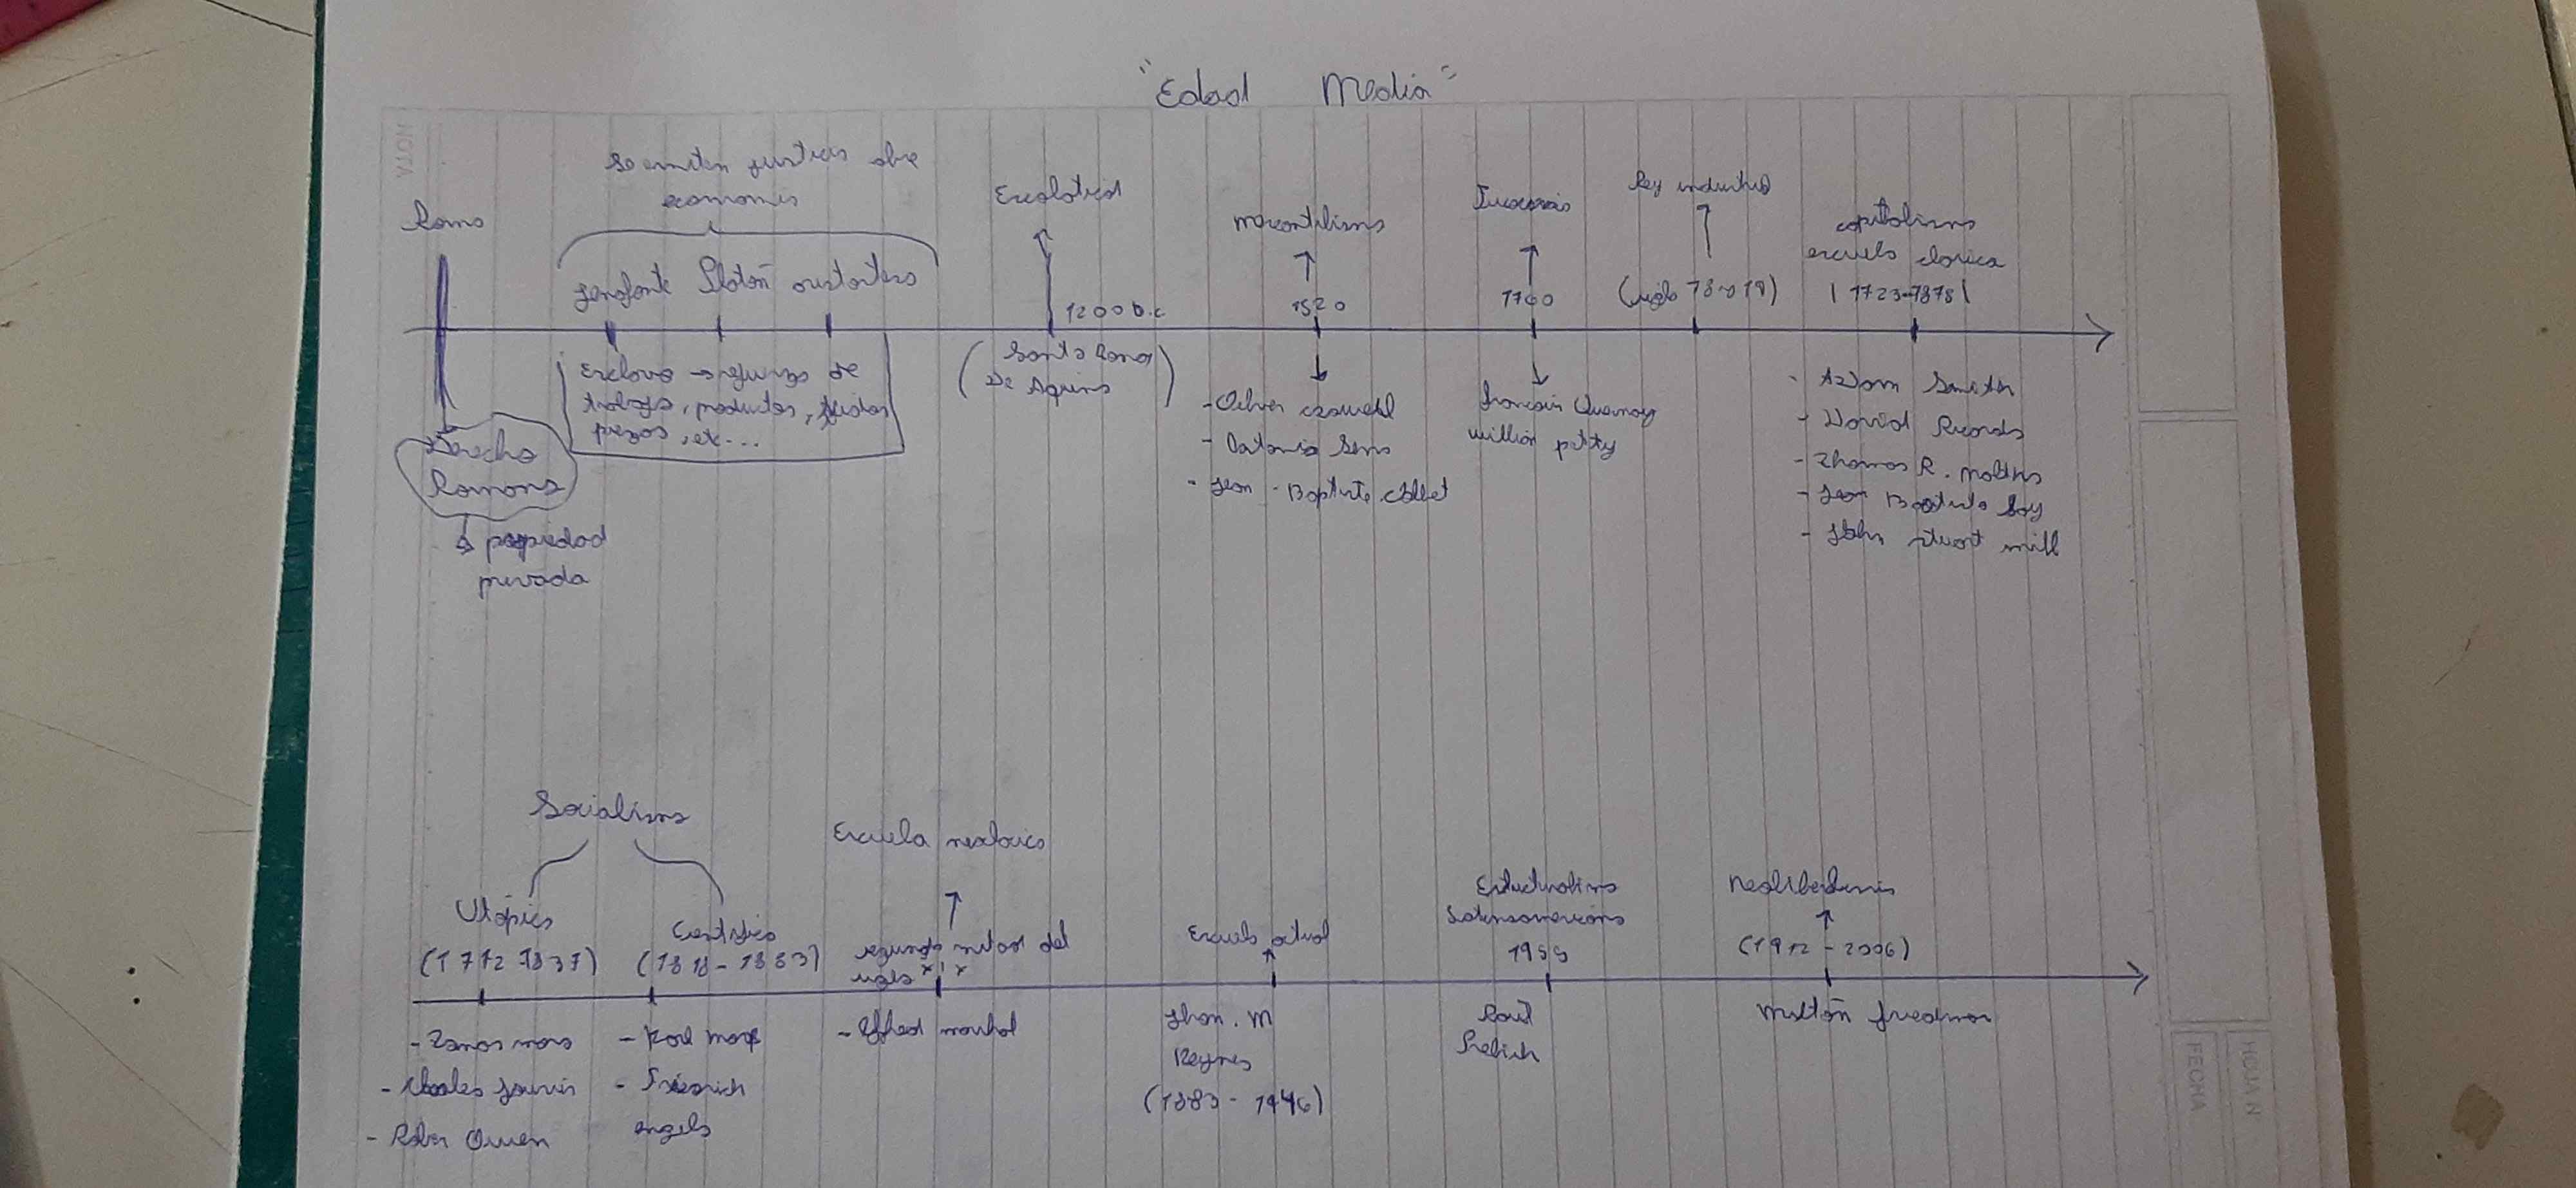 "Edad Media"
Se emiten justicia sobre
economia
Roma
Jenofonte Platón aristoteles
Escolástica
1200 d.c
mercantilismo
1520
Fisiocracia
1760
Rev industrial
(siglo 18 y 19)
capitalismo
escuela clasica
(1723-1878)
Esclavo → esfuerzo de
trabajo, productos,
precios, etc...
(Santo Tomas
De Aquino)
Derecho
Romano
propiedad
privada
- Oliver
- Antonio Serra
- Jean - Baptiste Colbet
Francois Quesnay
william petty
- Adam Smith
- David Ricardo
- Thomas R. Malthus
- Jean Baptiste Say
- John stuart mill
Socialismo
Utópico
(1772 1837)
Cientifico
(1818 - 1883)
Escuela neoclasica
segunda mitad del
siglo x i x
Escuela actual
Estructuralismo
Latinoamericano
1950
Neoliberalismo
(1912 - 2006)
- Tomas moro
- Charles fourier
- Rober Owen
- Karl Marx
- Friedrich
engels
- Alfred marshal
Jhon. M
Keynes
(1883 - 1946)
Raúl
Prebish
Miltón friedman
NOTA
FECHA
HOJA N